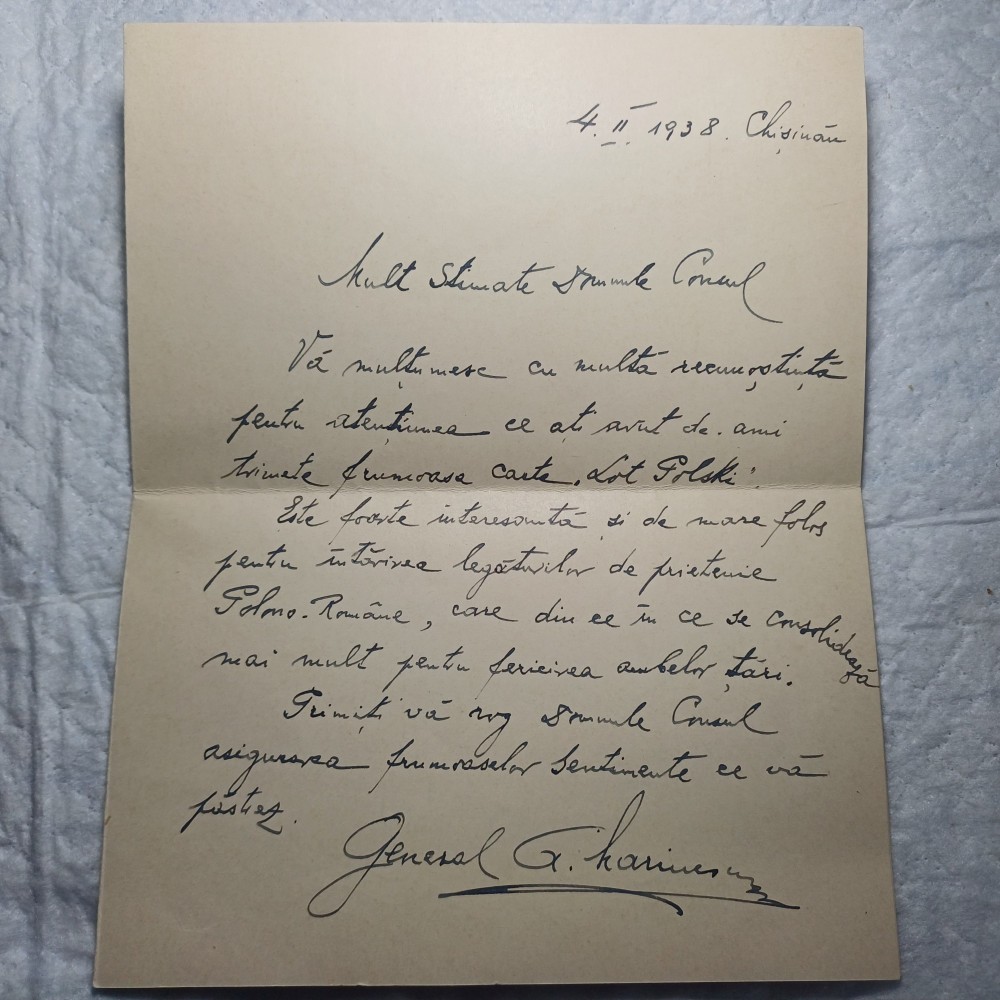 4. II. 1938. Chișinău
Mult Stimate Domnule Consul
Vă mulțumesc cu multă recunoștință
pentru atențiunea ce ați avut de. ami
trimete frumoasa carte „Lot Polski".
Este foarte interesantă și de mare folos
pentru întărirea legăturilor de prietenie
Polono-Române, care din ce în ce se consolidează
mai mult pentru fericirea ambelor țări.
Primiți vă rog Domnule Consul
asigurarea frumoaselor sentimente ce vă
păstrez.
General G. Marinescu